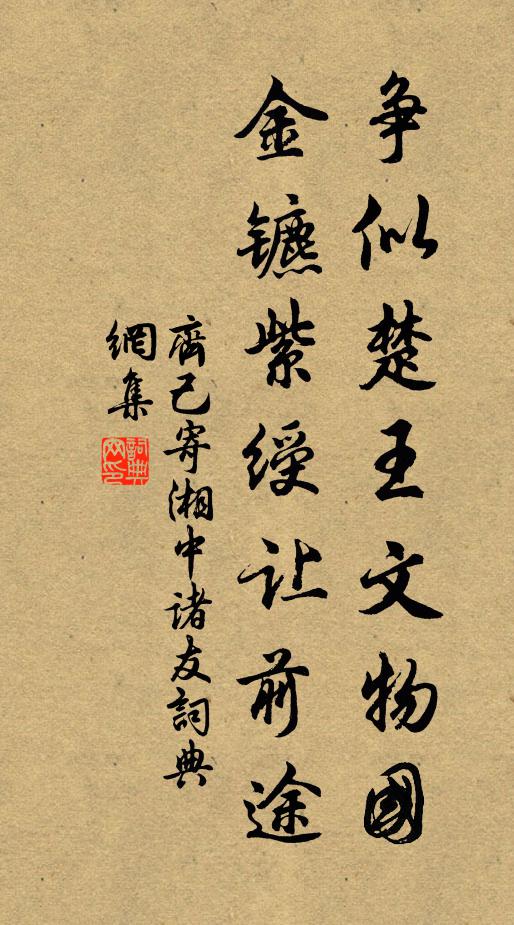 争似楚王文物國
金镳紫綬让前途
齊己寄湘中诸友詞典
網集
詞典網印